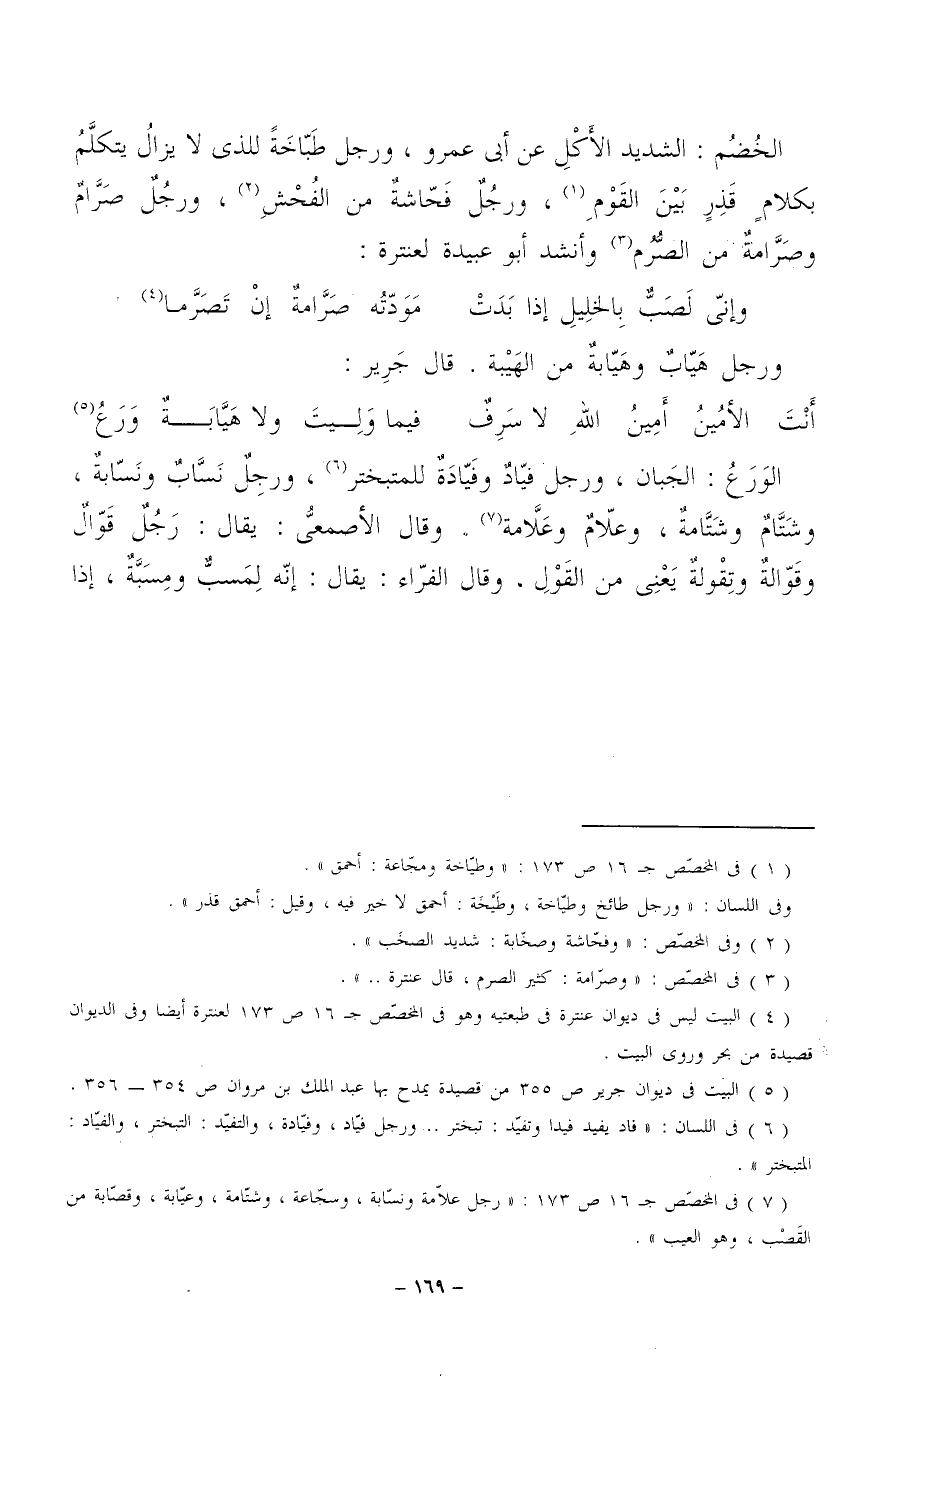 الخُضُم : الشديد الأَكْلِ عن أبى عمرو ، ورجل طَبّاخَةً للذى لا يزالُ يتكلَّمُ
بكلامٍ قَذِرٍ بَيْنَ القَوْمِ(١) ، ورجُلٌ فَحّاشةٌ من الفُحْشِ(٢) ، ورجُلٌ صَرَّامٌ
وصَرَّامةٌ من الصُّرْم(٣) وأنشد أبو عبيدة لعنترة :
وإنّى لَصَبٌّ بِالخلِيلِ إذا بَدَتْ مَوَدّتُه صَرَّامةٌ إنْ تَصَرَّما(٤)
ورجل هَيّابٌ وهَيّابةٌ من الهَيْبة . قال جَرِير :
أَنْتَ الأمُينُ أَمِينُ اللهِ لا سَرِفٌ فيما وَلِيتَ ولا هَيَّابَةٌ وَرَعُ(٥)
الوَرَعُ : الجَبان ، ورجل فيّادٌ وفَيّادَةٌ للمتبختر(٦) ، ورجلٌ نَسَّابٌ ونَسّابةٌ ،
وشَتَّامٌ وشَتَّامةٌ ، وعلّامٌ وعَلَّامة(٧) . وقال الأصمعىُّ : يقال : رَجُلٌ قَوّالٌ
وقَوّالةٌ وتِقْولةٌ يَعْنِى من القَوْلِ . وقال الفرّاء : يقال : إنّه لِمَسبٌّ ومِسَبَّةٌ ، إذا
( ١ ) فى المخصّص جـ ١٦ ص ١٧٣ : « وطيّاخة ومجّاعة : أحمق » .
وفى اللسان : « ورجل طائخ وطيّاخة ، وطَيْخَة : أحمق لا خير فيه ، وقيل : أحمق قذر » .
( ٢ ) وفى المخصّص : « وفحّاشة وصخّابة : شديد الصخَب » .
( ٣ ) فى المخصّص : « وصرّامة : كثير الصرم ، قال عنترة .. » .
( ٤ ) البيت ليس فى ديوان عنترة فى طبعتيه وهو فى المخصّص جـ ١٦ ص ١٧٣ لعنترة أيضا وفى الديوان
قصيدة من بحر وروى البيت .
( ٥ ) البيت فى ديوان جرير ص ٣٥٥ من قصيدة يمدح بها عبد الملك بن مروان ص ٣٥٤ – ٣٥٦ .
( ٦ ) فى اللسان : « فاد يفيد فيدا وتفيّد : تبختر .. ورجل فيّاد ، وفيّادة ، والتفيّد : التبختر ، والفيّاد :
المتبختر » .
( ٧ ) فى المخصّص جـ ١٦ ص ١٧٣ : « رجل علاّمة ونسّابة ، وسجّاعة ، وشتّامة ، وعيّابة ، وقصّابة من
القَصْب ، وهو العيب » .
– ١٦٩ –